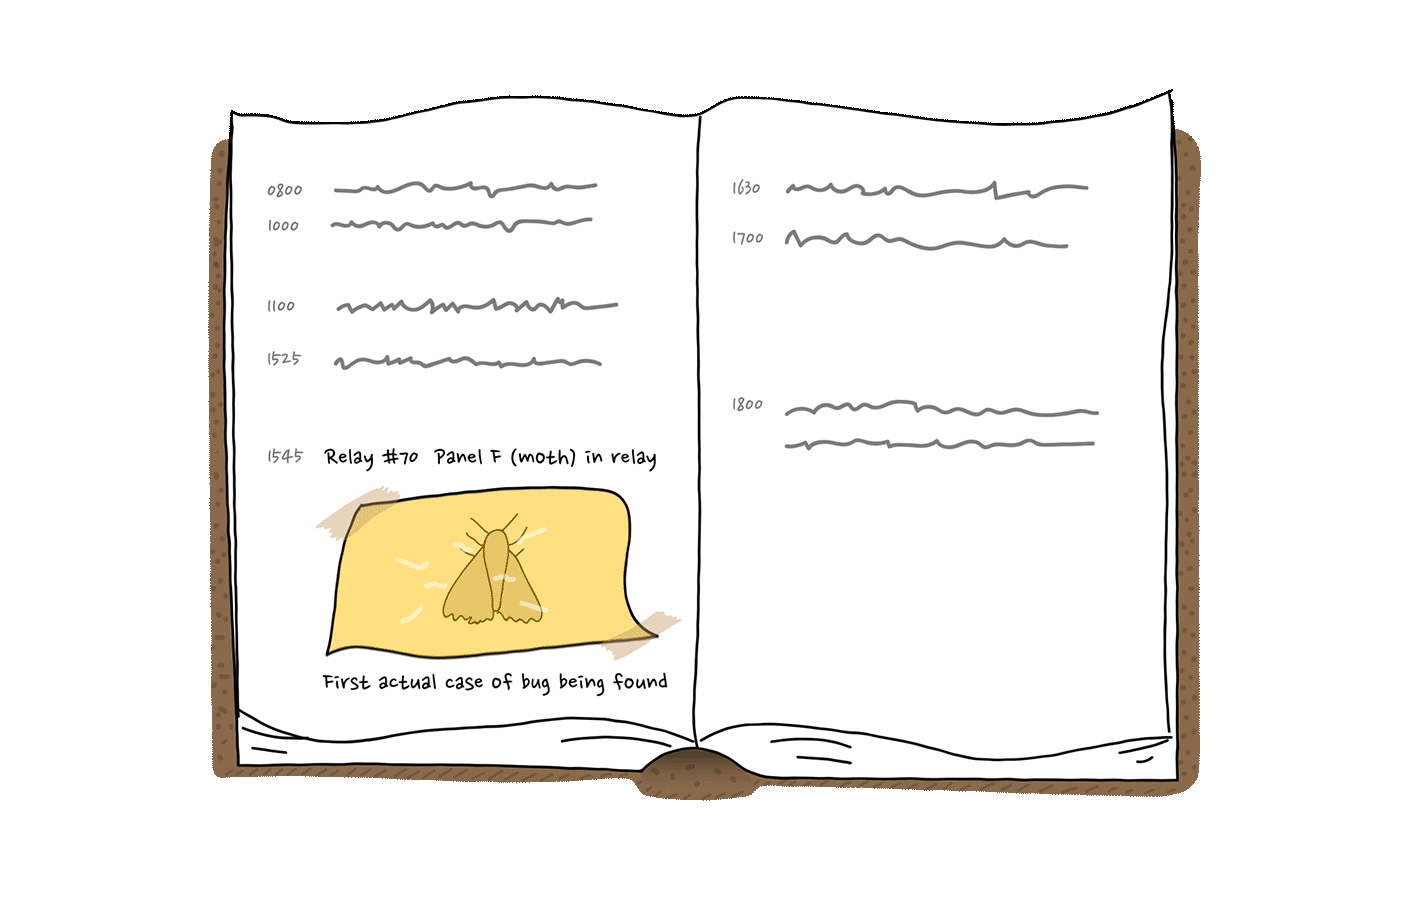 0800
1000
1100
1525
1545 Relay #70 Panel F (moth) in relay
First actual case of bug being found
1630
1700
1800